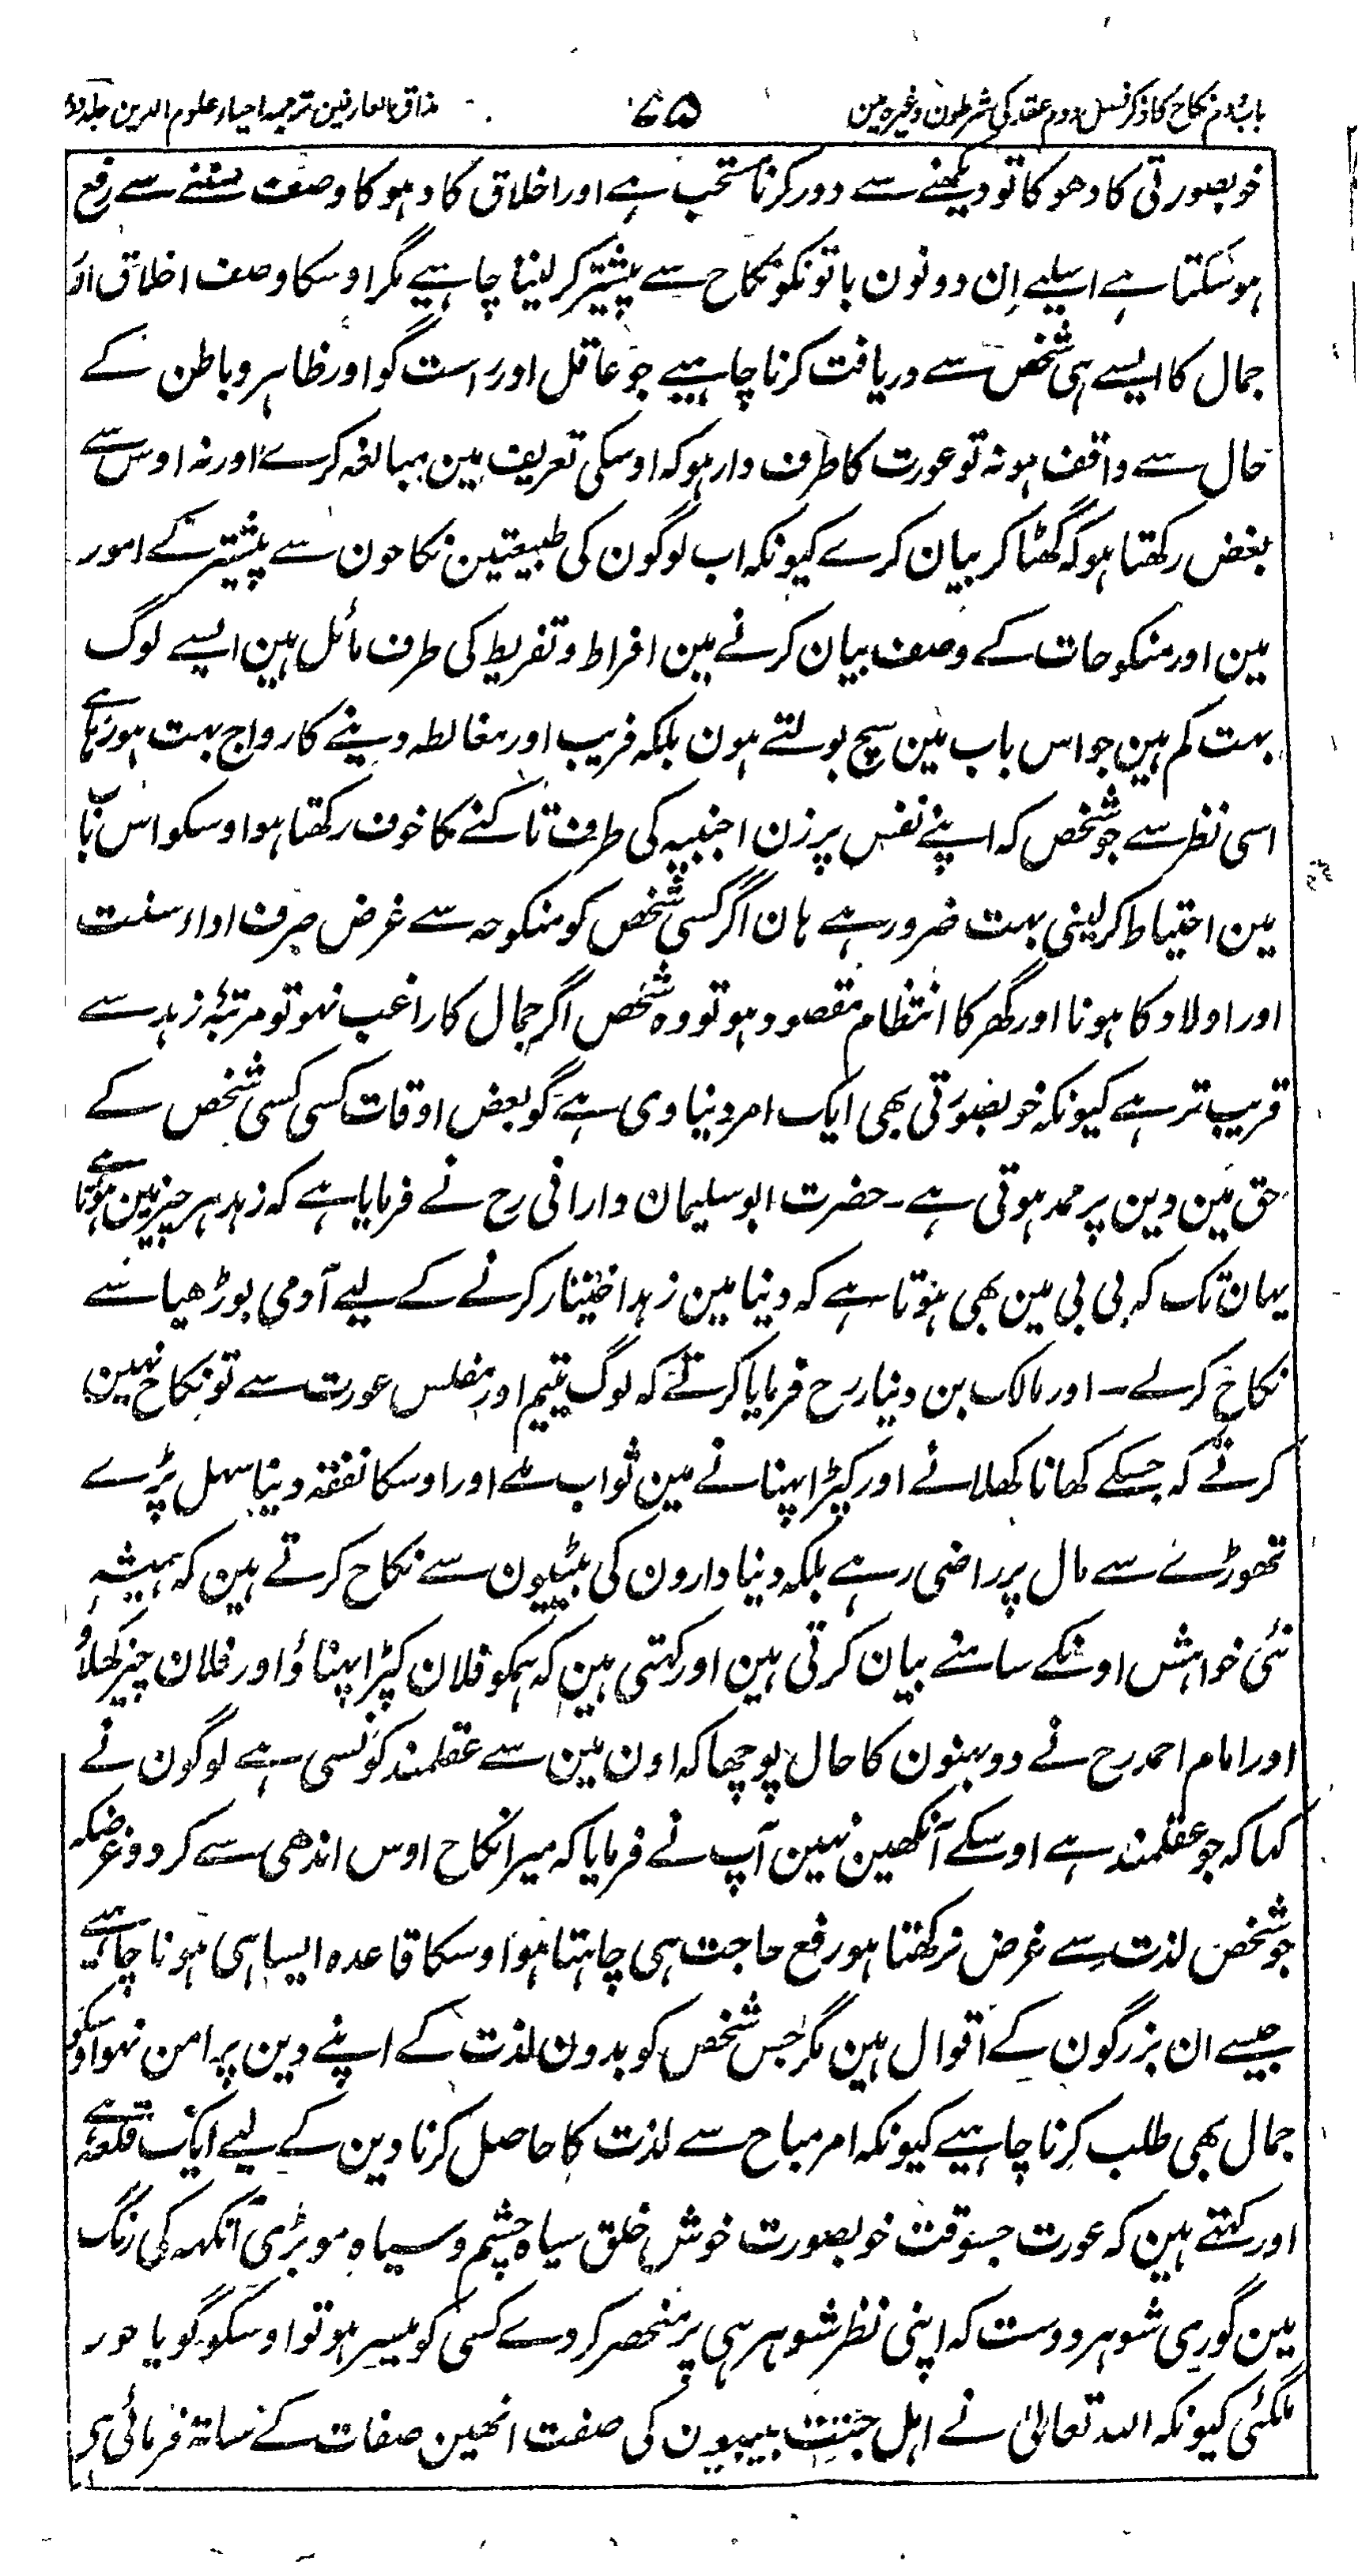 باب دوم نکاح کا ذکر فصل دوم عقد کی شرطون وغیرہ مین ۷۵ مذاق العارفین ترجمہ احیاء علوم الدین جلد دوم
خوبصورتی کا دھوکا تو دیکھنے سے دور کرنا مستحب ہے اور اخلاق کا دہوکا وصف سننے سے رفع
ہو سکتا ہے اسلیے اِن دونون باتونکو نکاح سے پیشتر کر لینا چاہیے مگر اوسکا وصف اخلاق اور
جمال کا ایسے ہی شخص سے دریافت کرنا چاہیے جو عاقل اور راست گو اور ظاہر و باطن کے
حال سے واقف ہو نہ تو عورت کا طرف دار ہو کہ اوسکی تعریف مین مبالغہ کرے اور نہ اوس سے
بغض رکھتا ہو کہ گھٹا کر بیان کرے کیونکہ اب لوگون کی طبیعتین نکاحون سے پیشتر کے امور
مین اور منکوحات کے وصف بیان کرنے مین افراط و تفریط کی طرف مائل ہین ایسے لوگ
بہت کم ہین جو اس باب مین سچ بولتے ہون بلکہ فریب اور مغالطہ دینے کا رواج بہت ہو رہا ہے
اسی نظر سے جو شخص کہ اپنے نفس پر زن اجنبیہ کی طرف تاکنے کا خوف رکھتا ہو اوسکو اس باب
مین احتیاط کر لینی بہت ضرور ہے ہان اگر کسی شخص کو منکوحہ سے غرض صرف اداء سنت
اور اولاد کا ہونا اور گھر کا انتظام مقصود ہو تو وہ شخص اگر جمال کا راغب نہو تو مرتبۂ زہد سے
قریب تر ہے کیونکہ خوبصورتی بھی ایک امر دنیاوی ہے گو بعض اوقات کسی کسی شخص کے
حق مین دین پر ممد ہوتی ہے۔ حضرت ابو سلیمان دارانی رح نے فرمایا ہے کہ زہد ہر چیز مین ہوتا ہے
یہان تک کہ بی بی مین بھی ہوتا ہے کہ دنیا مین زہد اختیار کرنے کے لیے آدمی بوڑھیا سے
نکاح کرلے۔ اور مالک بن دینار رح فرمایا کرتے کہ لوگ یتیم اور مفلس عورت سے تو نکاح نہین
کرتے کہ جسکے کھانا کھلانے اور کپڑا پہنانے مین ثواب ملے اور اوسکا نفقہ دینا سہل پڑے
تھوڑے سے مال پر راضی رہے بلکہ دنیا دارون کی بیٹیون سے نکاح کرتے ہین کہ ہمیشہ
نئی خواہش اونکے سامنے بیان کرتی ہین اور کہتی ہین کہ ہمکو فلان کپڑا پہناؤ اور فلان چیز کھلاؤ
اور امام احمد رح نے دو بہنون کا حال پوچھا کہ اون مین سے عقلمند کونسی ہے لوگون نے
کہا کہ جو عقلمند ہے اوسکے آنکھین نہین آپ نے فرمایا کہ میرا نکاح اوس اندھی سے کر دو غرضکہ
جو شخص لذت سے غرض نرکھتا ہو رفع حاجت ہی چاہتا ہو اوسکا قاعدہ ایسا ہی ہونا چاہیے
جیسے ان بزرگون کے اقوال ہین مگر جس شخص کو بدون لذت کے اپنے دین پر امن نہو اوسکو
جمال بھی طلب کرنا چاہیے کیونکہ امر مباح سے لذت کا حاصل کرنا دین کے لیے ایک قلعہ ہے
اور کہتے ہین کہ عورت جسوقت خوبصورت خوش خلق سیاہ چشم و سیاہ مو بڑی آنکہہ کی رنگ
مین گوری شوہر دوست کہ اپنی نظر شوہر ہی پر منحصر کردے کسی کو میسر ہو تو اوسکو گویا حور
ملگئی کیونکہ اللہ تعالیٰ نے اہل جنت بیبیون کی صفت انھین صفات کے ساتہ فرمائی ہی